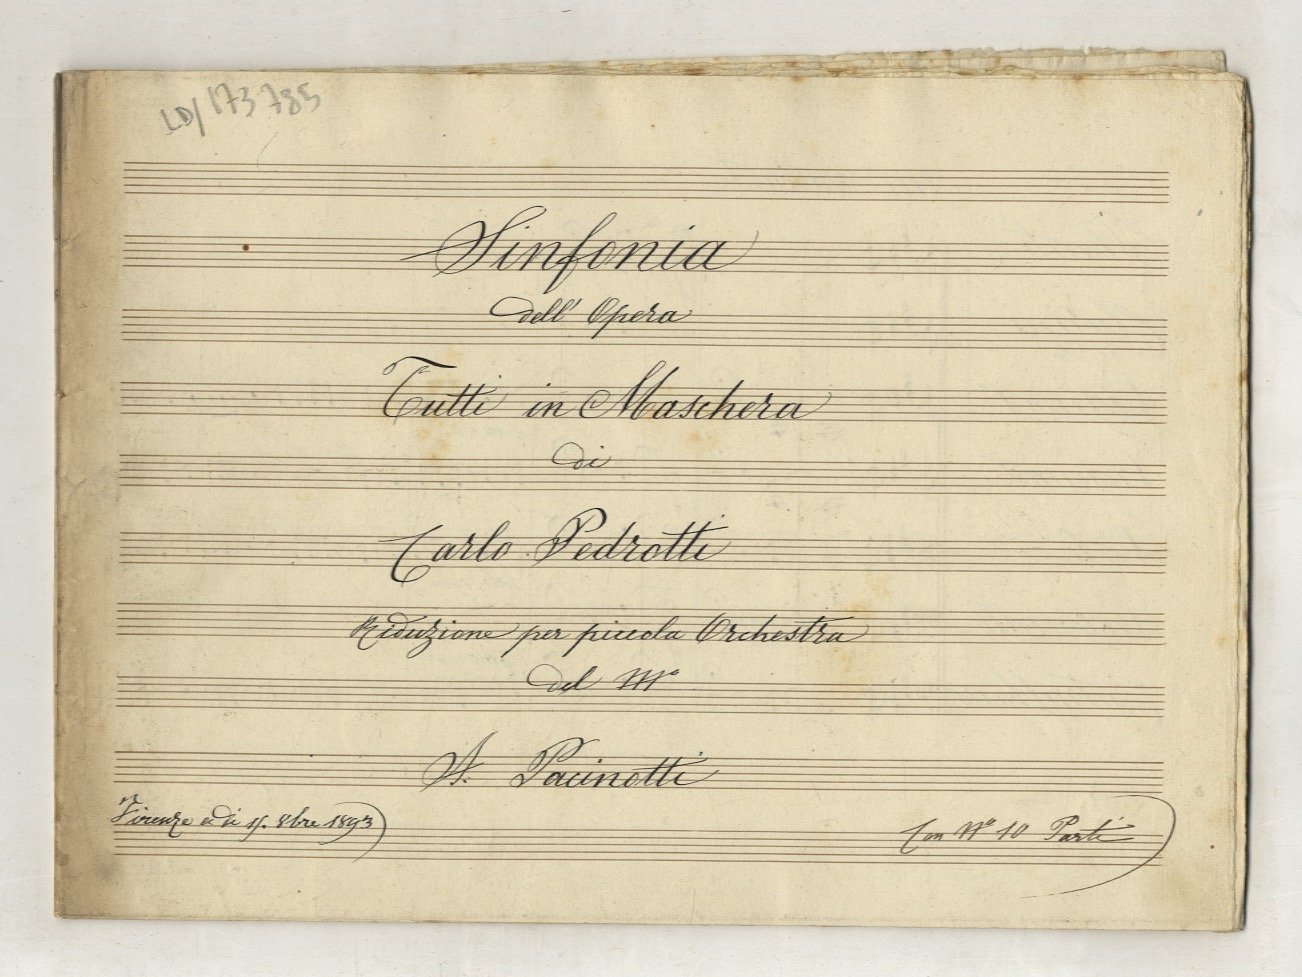 LD/173785
Sinfonia
dell' Opera
Tutti in Maschera
di
Carlo Pedrotti
Riduzione per piccola Orchestra
del Mº
A. Pacinotti
Firenze a di 8bre 1893
Con Nº 10 Parti